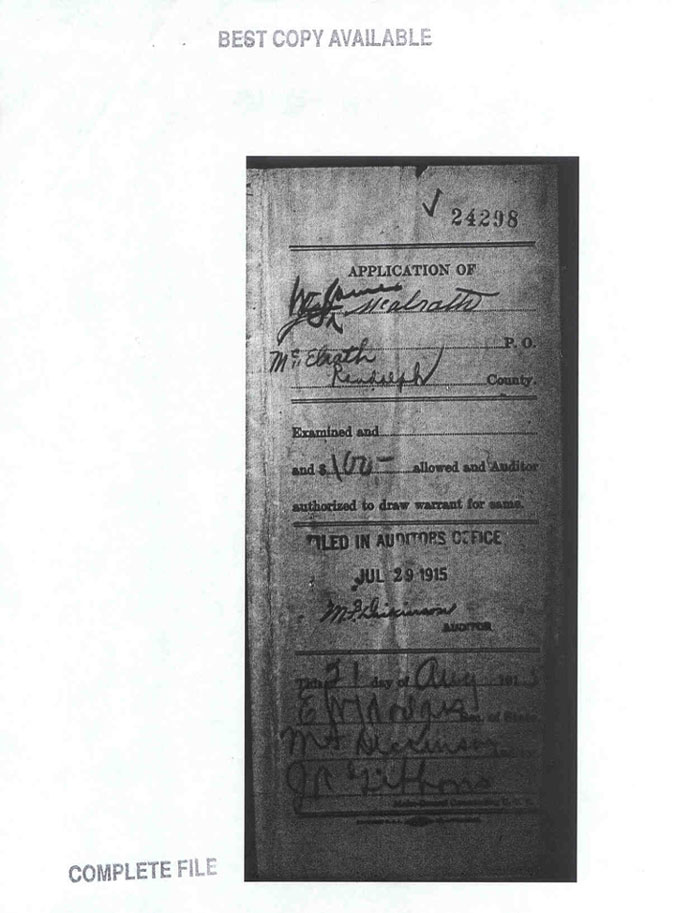 BEST COPY AVAILABLE
✓ 24298
APPLICATION OF
James
Mcalrath
McElrath P. O.
Randolph County.
Examined and
and $ 100- allowed and Auditor
authorized to draw warrant for same.
FILED IN AUDITORS OFFICE
JUL 29 1915
Dickinson
AUDITOR
This 21 day of Aug 191
Hodges Sec. of State
Dickinson
COMPLETE FILE